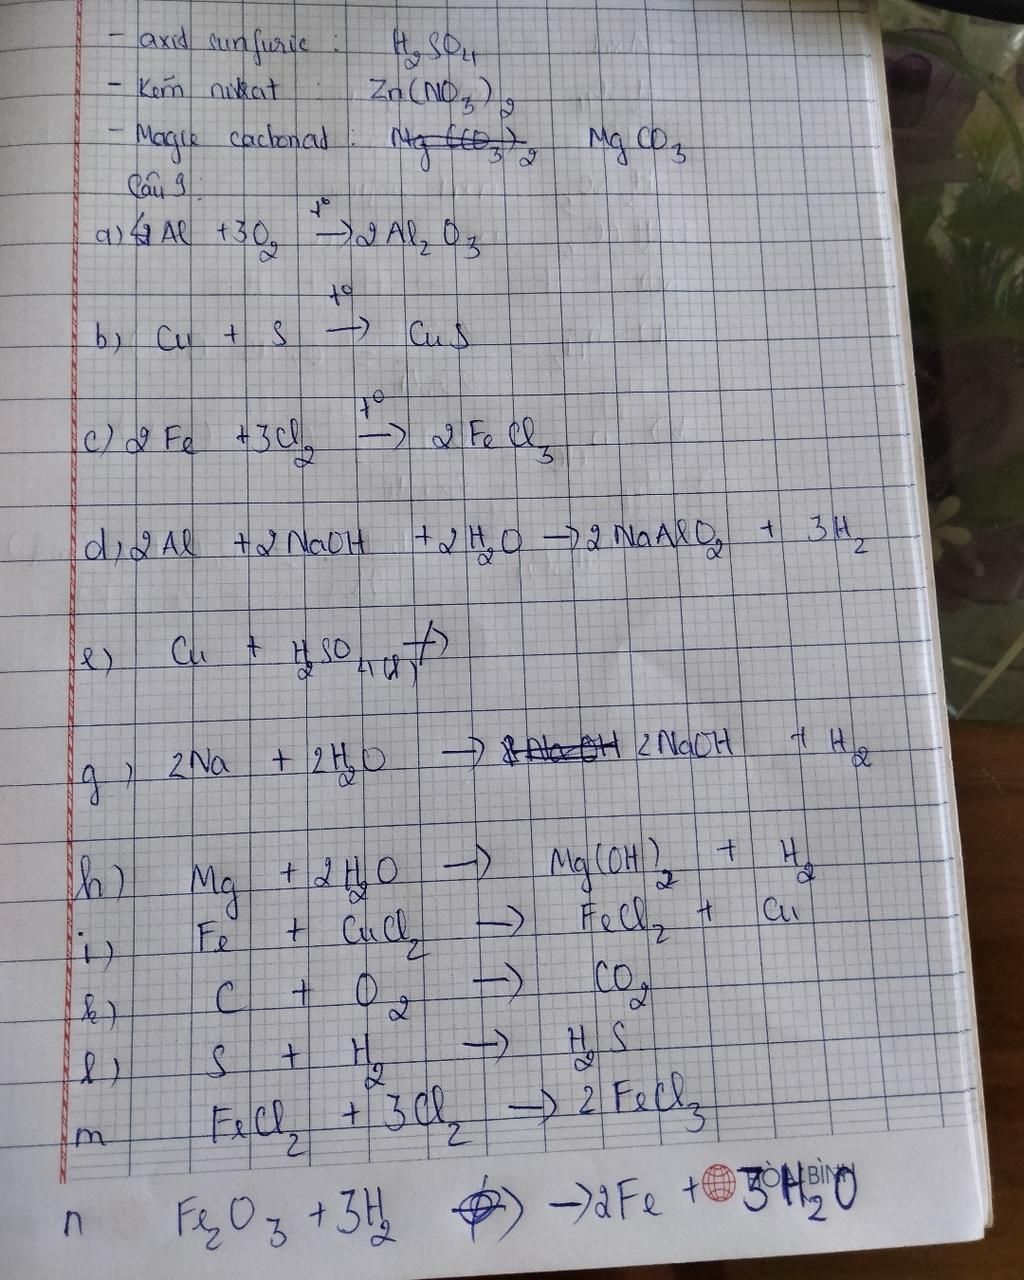 - axid sunfuric : H₂SO₄
- Kẽm nitrat : Zn(NO₃)₂
- Magie cacbonat : Mg(CO₃)₂ MgCO₃
Câu 9:
a) 4Al + 3O₂ t° → 2Al₂O₃
b) Cu + S t° → CuS
c) 2Fe + 3Cl₂ t° → 2FeCl₃
d) 2Al + 2NaOH + 2H₂O → 2NaAlO₂ + 3H₂
e) Cu + H₂SO₄ ↛
g) 2Na + 2H₂O → 2NaOH + H₂
h) Mg + 2H₂O → Mg(OH)₂ + H₂
i) Fe + CuCl₂ → FeCl₂ + Cu
k) C + O₂ → CO₂
l) S + H₂ → H₂S
m FeCl₂ + 3Cl₂ → 2FeCl₃
n Fe₂O₃ + 3H₂ → 2Fe + 3H₂O